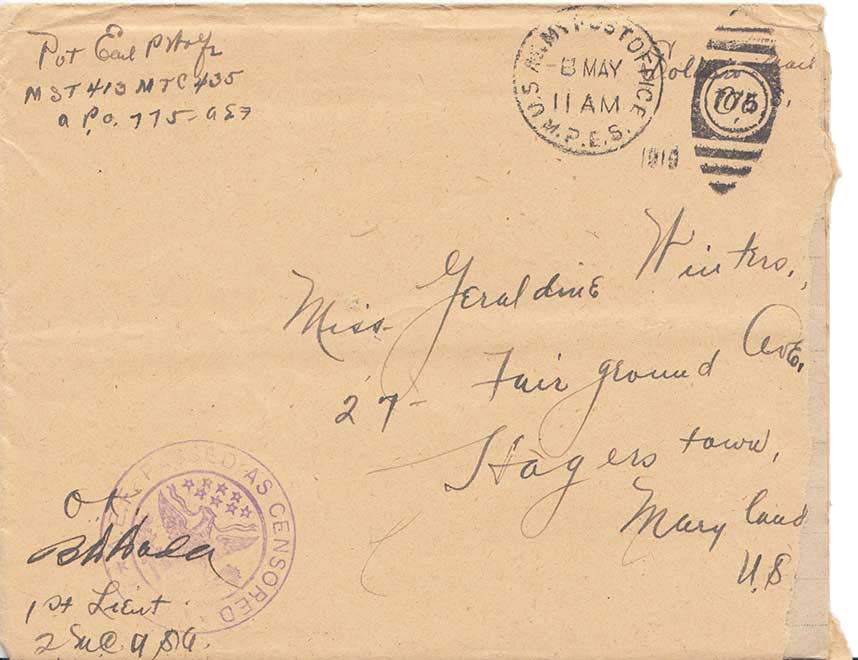 Pvt Earl P Wolfe
MST 413 MTC 435
a P.O. 775- AEF
U.S. ARMY POST OFFICE
M.P.E.S.
8 MAY
11 AM
1919
Soldiers Mail
775
Miss Geraldine Winters,
27- Fair ground AvE,
Hagers town,
Mary land
U.S
PASSED AS CENSORED
O.K.
1st Lieut